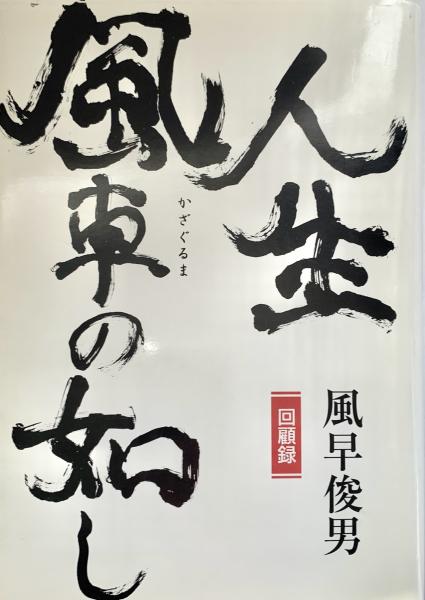 人生
風車の如し
かざぐるま
回顧録
風早俊男